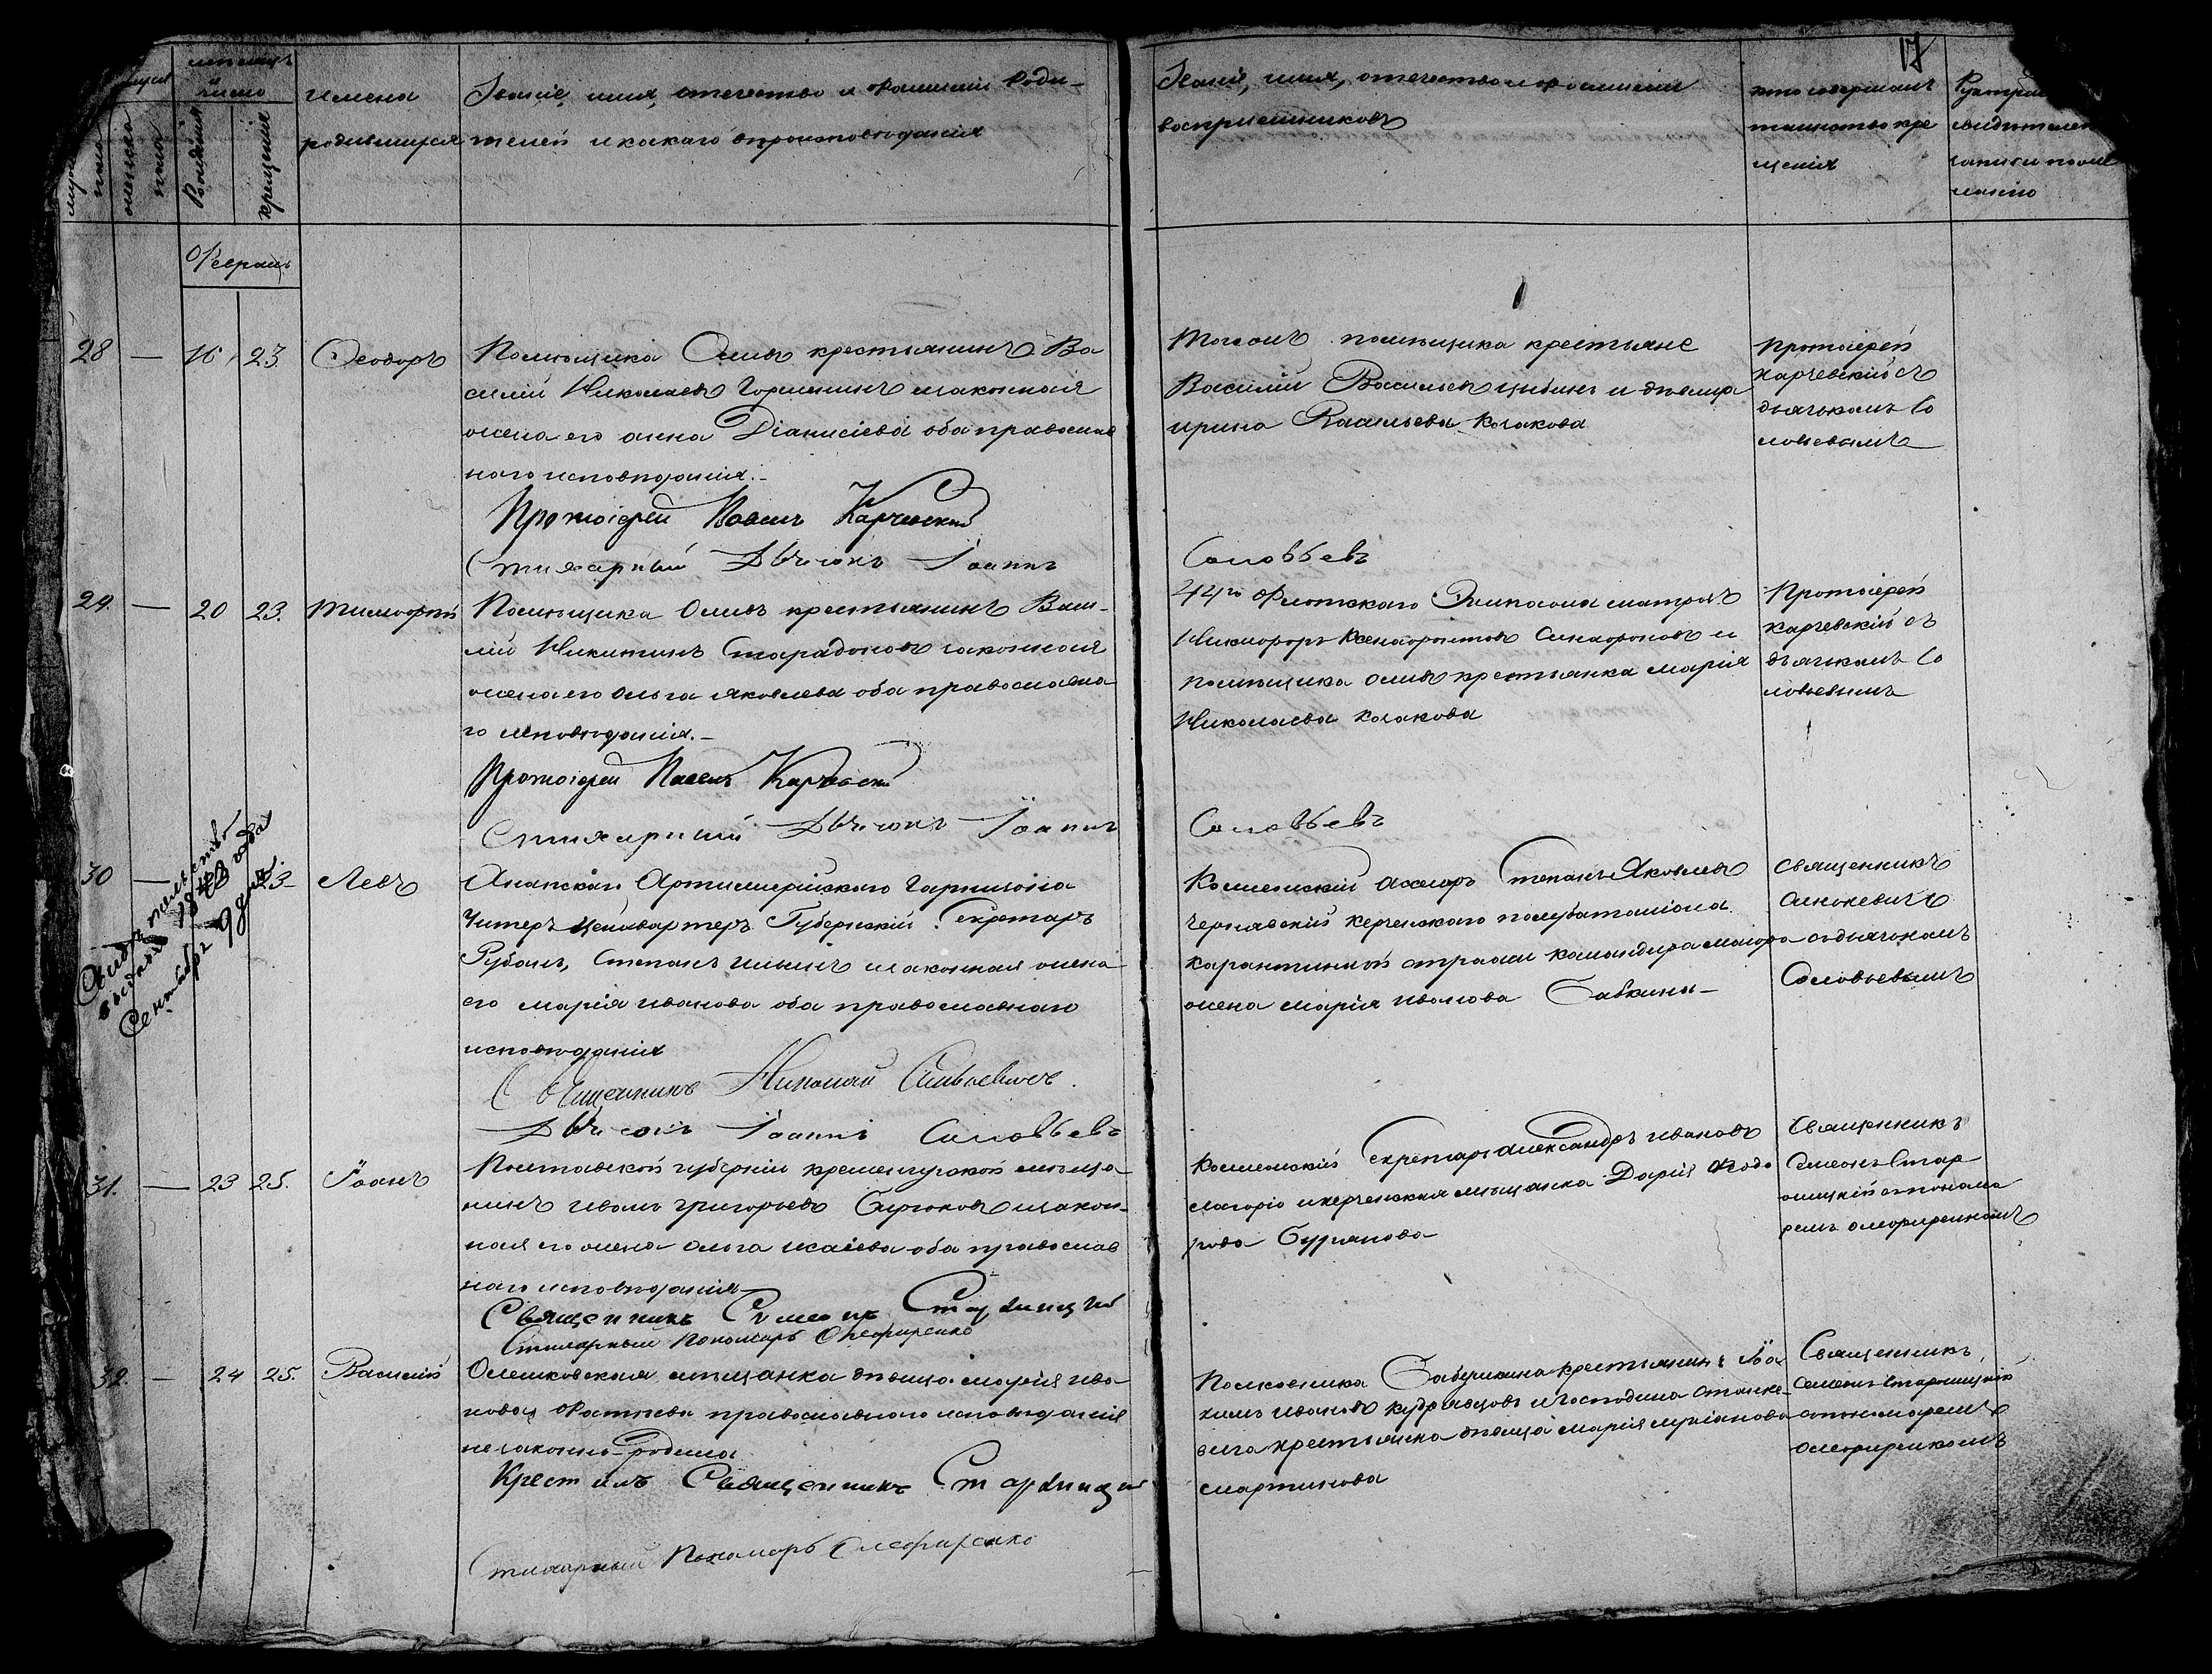 17
мѣсяцъ
и
число
Имена
родившихся
Званіе, имя, отечество и фамилія роди-
телей и какаго вѣроисповѣданія
Званіе, имя, отечество и фамилія
воспріемниковъ
кто совершалъ
таинство кре
щенія
Рождѣнія
крещенія
Февраль
28 — 16 23. Феодоръ
Помѣщика Олива крестьянинъ Ва
силій Николаевъ Горшенинъ и законная
жена его Анна Діанисіева оба православ
наго исповѣданія.-
Протоіерей Павелъ Карчевскій
Стихарный Дьячокъ Іоаннъ
Соловьевъ
Тогожъ помѣщика крестьяне
Василій Васильевъ Цыбинъ и дѣвица
Ирина Васильева Казакова
Протоіерей
Карчевскій съ
дьячкомъ Со
ловьевымъ
29. — 20 23. Тимофей
Помѣщика Олива крестьянинъ Васи-
лій Никитинъ Старадоновъ и законная
жена его Ольга Яковлева оба православна
го исповѣданія.-
Протоіерей Павелъ Карчевскій
Стихарный Дьячокъ Іоаннъ
Соловьевъ
44го Флотскаго Экипажа матрозъ
Никифоръ Ксенофонтовъ и
помѣщика Олива крестьянка Марія
Николаева Казакова
Протоіерей
Карчевскій съ
дьячкомъ Со
ловьевымъ
Свидѣтельство
выдано 1848 года
Сентября 9 дня.
30 — 23 Левъ
Анапскаго Артиллерійскаго Гарнизона
Губернскій Секретарь
Рубанъ, Степанъ Ильинъ и законная жена
его Марія Иванова оба православнаго
исповѣданія
Священникъ Николай
Дьячокъ Іоаннъ Соловьевъ
Коллежскій Асесоръ Степанъ Яковлевъ
Чернявскій Керченскаго полубаталіона
карантинной стражи командира маіора
жена Марія Иванова Бабкина-
Священникъ
съ дьячкомъ
Соловьевымъ
31. — 23 25. Іоанъ
Полтавской губерніи кременчугской мѣща
нинъ Иванъ Григорьевъ Бирюковъ и закон-
ная его жена Ольга Исаіева оба православ
наго исповѣданія
Священникъ Симеонъ Старицкій
Стихарный Пономарь Олефиренко
Коллежскій Секретарь Александръ Ивановъ
и керченская мѣщанка Дарія Фодо
рова Бурлакова
Священникъ
Симеонъ Стар
ицкій съ понома
ремъ Олефиренкомъ
32. — 24 25. Василій
Олешковская мѣщанка дѣвица Марія Ива
нова православнаго исповѣданія
незаконно-родила
Крестилъ Священникъ Старицкій
Стихарный Пономарь Олефиренко
Полковника Бабушкина крестьянинъ Іоа
кимъ Ивановъ Кудрявцовъ и Господина Станке-
вича крестьянка дѣвица Марія Лукіанова
Мартинова
Священникъ
Симеонъ Старицкій
съ пономаремъ
Олефиренкомъ